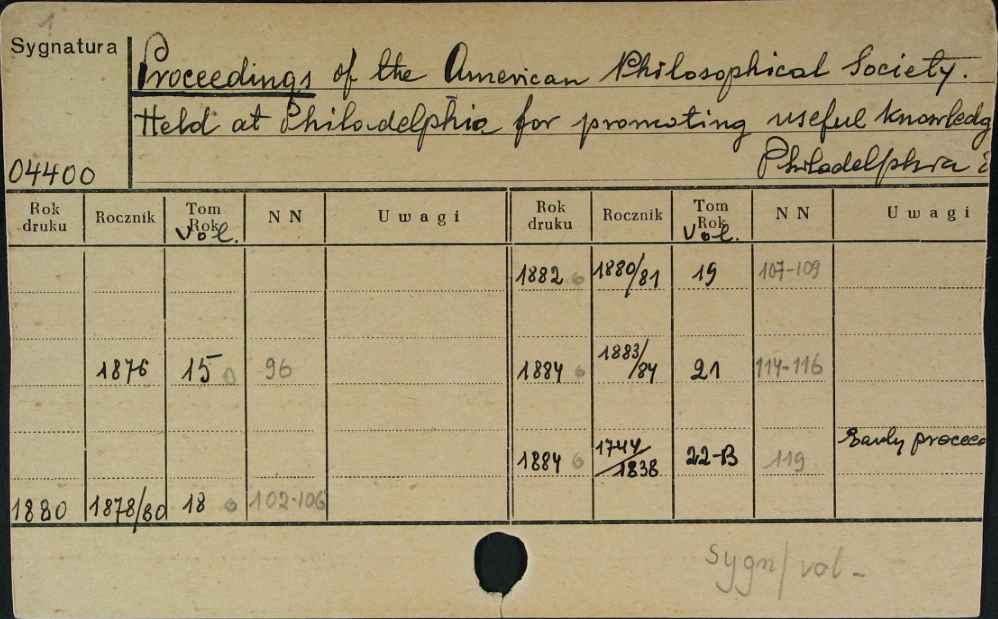 1
Sygnatura
Proceedings of the American Philosophical Society.
Held at Philadelphia for promoting useful knowledg
04400
Philadelphia
Rok druku Rocznik Tom Rok Vol. NN Uwagi Rok druku Rocznik Tom Rok Vol. NN Uwagi
1882 o 1880/81 19 107-109
1876 15 o 96 1884 o 1883/84 21 114-116
1884 o 1744/1838 22-B 119 Early proceed
1880 1878/80 18 o 102-106
Sygn/vol-